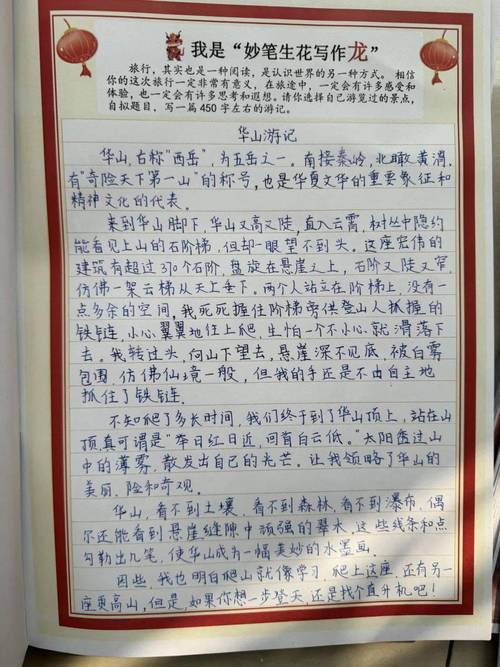 我是“妙笔生花写作龙”
旅行，其实也是一种阅读，是认识世界的另一种方式。相信
你的这次旅行一定非常有意义，在旅途中，一定会有许多感受和
体验，也一定会有许多思考和遐想。请你选择自己游览过的景点，
自拟题目，写一篇 450 字左右的游记。
华山游记
华山，古称“西岳”，为五岳之一。南接秦岭，北瞰黄渭，
有“奇险天下第一山”的称号，也是华夏文华的重要象征和
精神文化的代表。
来到华山脚下，华山又高又陡，直入云霄，树丛中隐约
能看见上山的石阶梯，但却一眼望不到头。这座宏伟的
建筑有超过370个石阶，盘旋在悬崖之上，石阶又陡又窄，
仿佛一架云梯从天上垂下。两个人站立在阶梯上，没有一
点多余的空间，我死死握住阶梯旁供登山人抓握的
铁链，小心翼翼地往上爬，生怕一个不小心就滑落下
去。我转过头，向山下望去，悬崖深不见底，被白雾
包围，仿佛仙境一般，但我的手还是不由自主地
抓住了铁链。
不知爬了多长时间，我们终于到了华山顶上，站在山
顶，真可谓是“举日红日近，回首白云低。”太阳透过山
中的薄雾，散发出自己的光芒。让我领略了华山的
美丽、险和奇观。
华山，看不到土壤，看不到森林，看不到瀑布，偶
尔还能看到悬崖缝隙中顽强的翠木，这些线条和点
勾勒出几笔，使华山成为一幅美妙的水墨画。
因些，我也明白爬山就像学习，爬上这座，还有另一
座更高山，但是，如果你想一步登天，还是找个直升机吧！